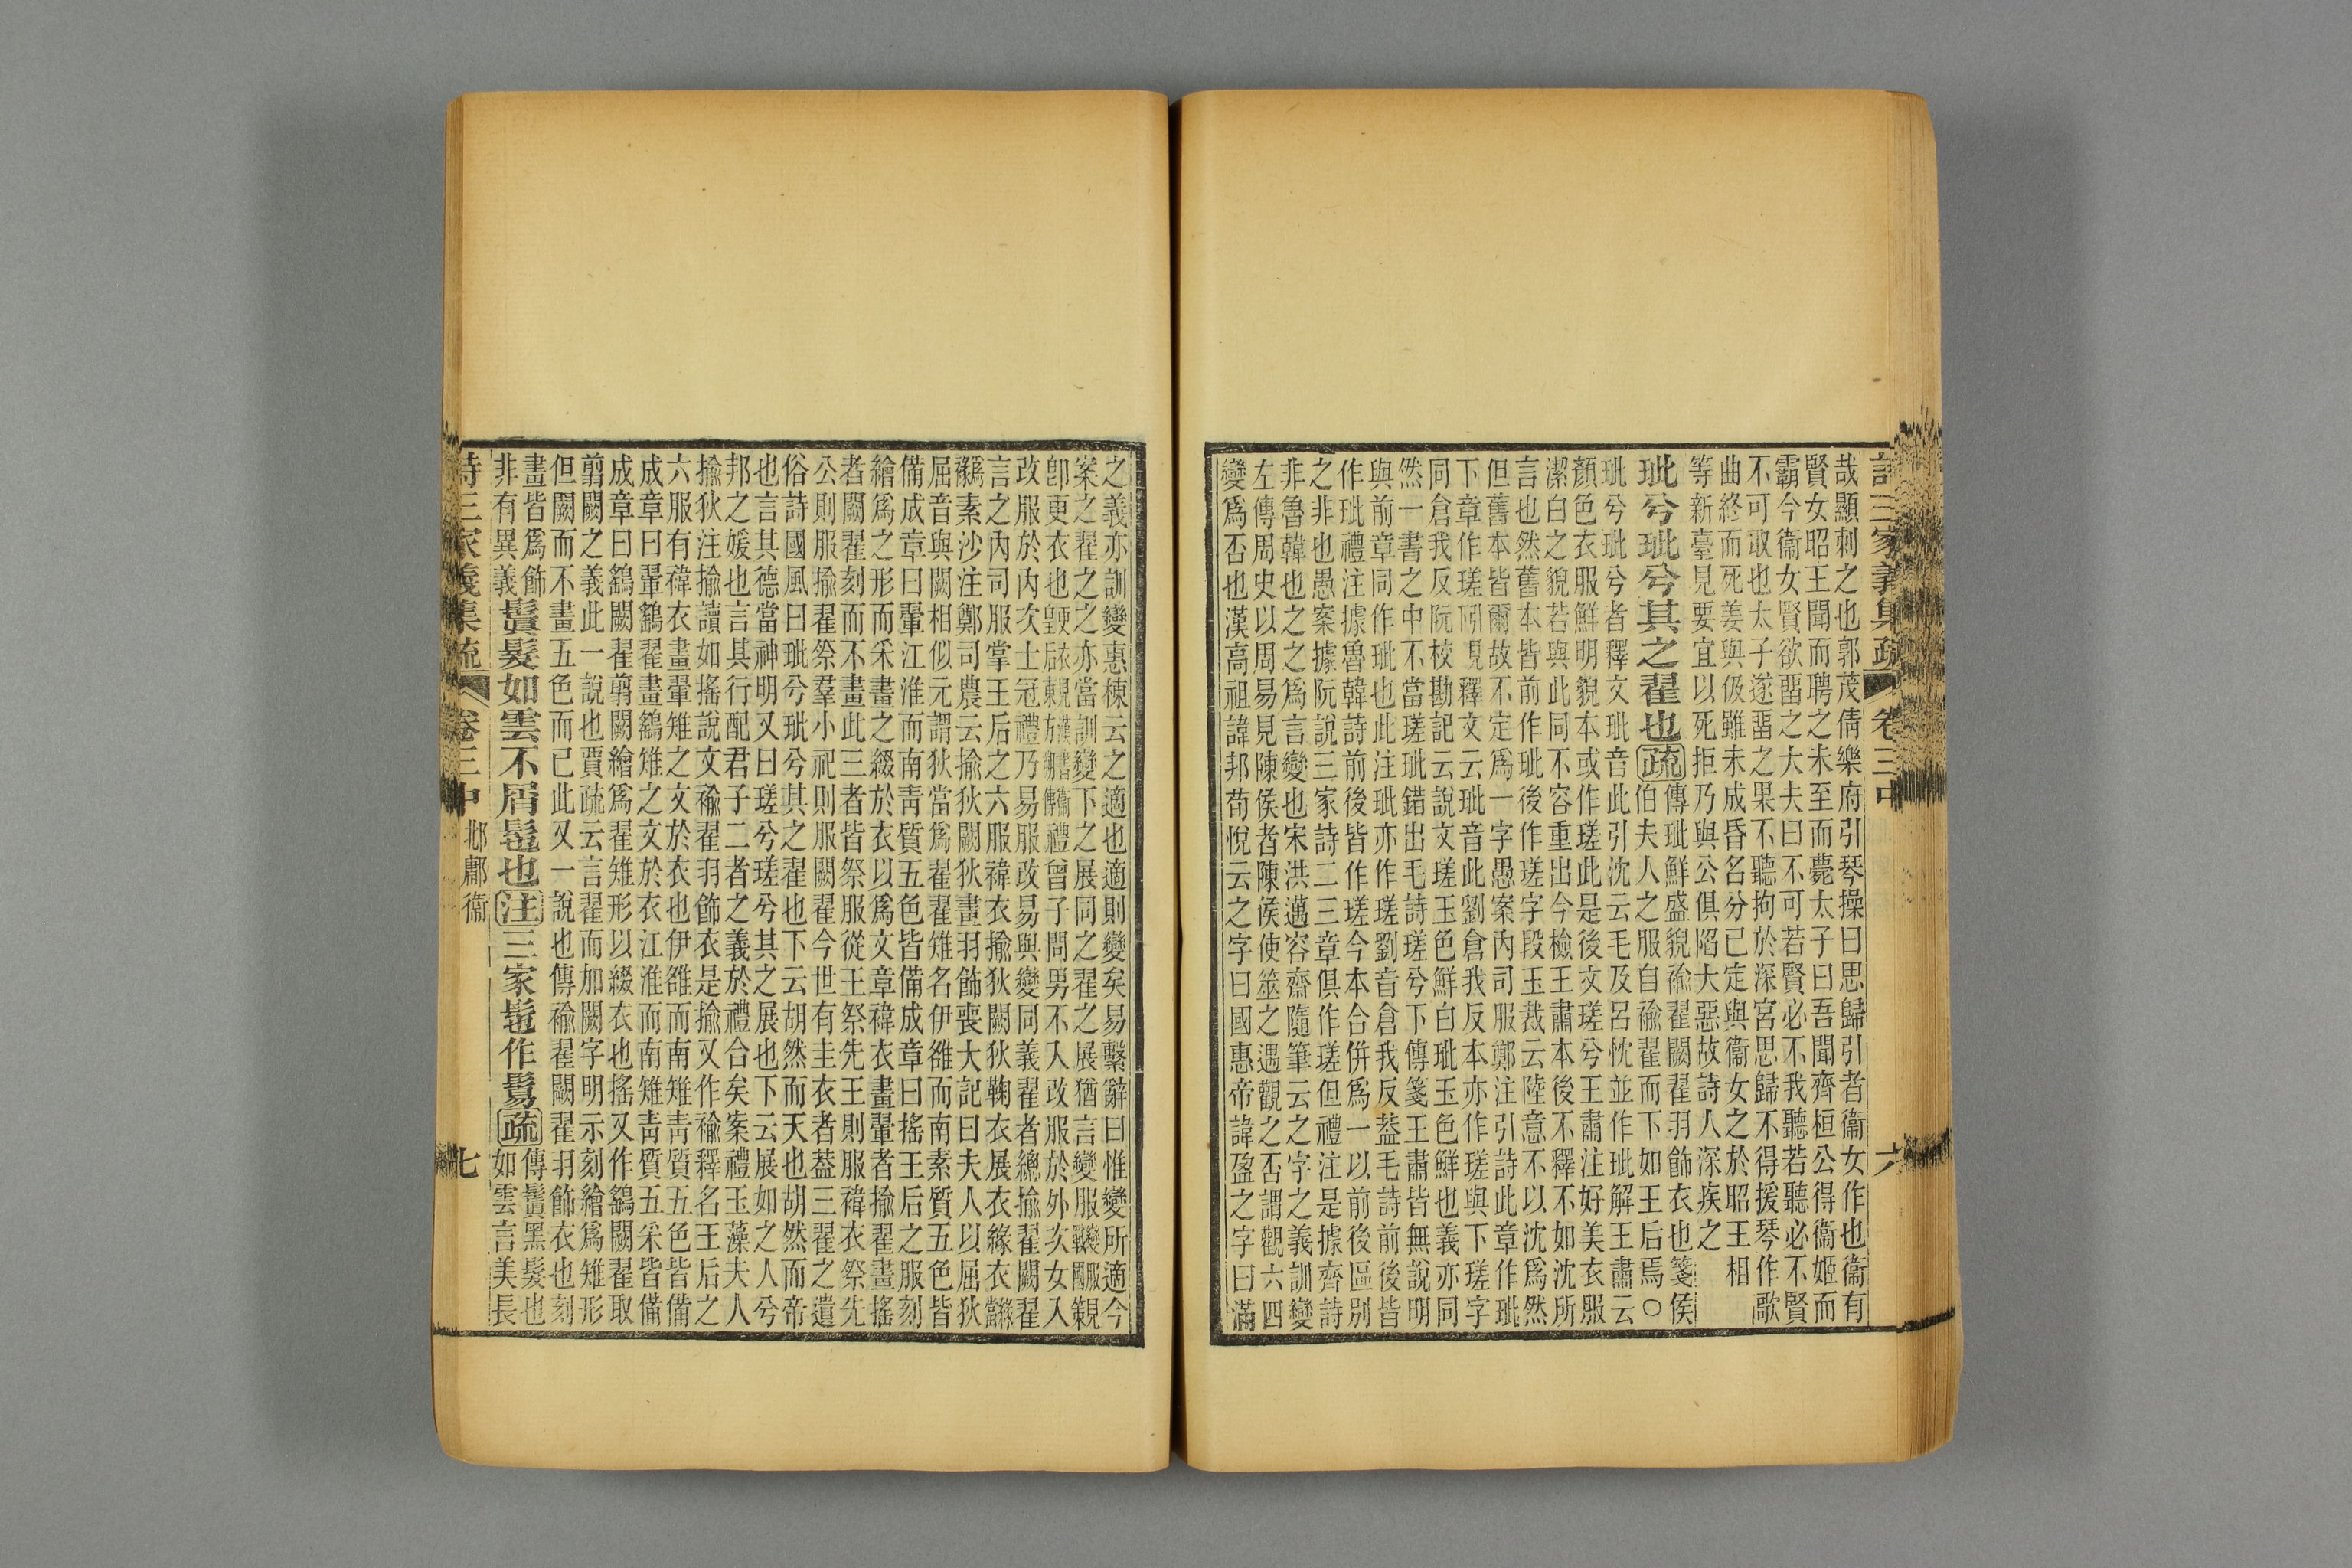 詩三家義集疏 卷三中 六
哉顯刺之也郭茂倩樂府引琴操曰思歸引者衞女作也衞有
賢女昭王聞而聘之未至而薨太子曰吾聞齊桓公得衞姬而
霸今衞女賢欲畱之大夫曰不可若賢必不我聽若聽必不賢
不可取也太子遂畱之果不聽拘於深宮思歸不得援琴作歌
曲終而死姜與伋雖未成昏名分已定與衞女之於昭王相
等新臺見要宜以死拒乃與公俱陷大惡故詩人深疾之
玼兮玼兮其之翟也疏
傳玼鮮盛貌褕翟闕翟羽飾衣也箋侯
伯夫人之服自褕翟而下如王后焉○
玼兮玼兮者釋文玼音此引沈云毛及呂忱並作玼解王肅云
顏色衣服鮮明貌本或作瑳此是後文瑳兮王肅注好美衣服
潔白之貌若與此同不容重出今檢王肅本後不釋不如沈所
言也然舊本皆前作玼後作瑳字段玉裁云陸意不以沈爲然
但舊本皆爾故不定爲一字愚案內司服鄭注引詩此章作玼
下章作瑳引見釋文云玼音此劉倉我反本亦作瑳與下瑳字
同倉我反阮校勘記云說文瑳玉色鮮白玼玉色鮮也義亦同
然一書之中不當瑳玼錯出毛詩瑳兮下傳箋王肅皆無說明
與前章同作玼也此注玼亦作瑳劉音倉我反葢毛詩前後皆
作玼禮注據魯韓詩前後皆作瑳今本合併爲一以前後區別
之非也愚案據阮說三家詩二三章俱作瑳但禮注是據齊詩
非魯韓也之之爲言變也宋洪邁容齋隨筆云之字之義訓變
左傳周史以周易見陳侯者陳侯使筮之遇觀之否謂觀六四
變爲否也漢高祖諱邦荀悅云之字曰國惠帝諱盈之字曰滿
之義亦訓變惠棟云之適也適則變矣易繫辭曰惟變所適今
案之翟之之亦當訓變下之展同之翟之展猶言變服
卽更衣也禮曾子問男不入改服於外次女入
改服於內次士冠禮乃易服改易與變同義翟者總褕翟闕翟
言之內司服掌王后之六服褘衣揄狄闕狄鞠衣展衣緣衣
素沙注鄭司農云揄狄闕狄畫羽飾喪大記曰夫人以屈狄
屈音與闕相似元謂狄當爲翟翟雉名伊雒而南素質五色皆
備成章曰翬江淮而南靑質五色皆備成章曰搖王后之服刻
繪爲之形而采畫之綴於衣以爲文章褘衣畫翬者揄翟畫搖
者闕翟刻而不畫此三者皆祭服從王祭先王則服褘衣祭先
公則服揄翟祭羣小祀則服闕翟今世有圭衣者葢三翟之遺
俗詩國風曰玼兮玼兮其之翟也下云胡然而天也胡然而帝
也言其德當神明又曰瑳兮瑳兮其之展也下云展如之人兮
邦之媛也言其行配君子二者之義於禮合矣案禮玉藻夫人
揄狄注揄讀如搖說文褕翟羽飾衣是揄又作褕釋名王后之
六服有褘衣畫翬雉之文於衣也伊雒而南雉靑質五色皆備
成章曰翬鷂翟畫鷂雉之文於衣江淮而南雉靑質五采皆備
成章曰鷂闕翟翦闕繒爲翟雉形以綴衣也搖又作鷂闕翟取
翦闕之義此一說也賈疏云言翟而加闕字明示刻繒爲雉形
但闕而不畫五色而已此又一說也傳褕翟闕翟羽飾衣也刻
畫皆爲飾
非有異義
鬒髮如雲不屑髢也注三家髢作鬄疏
傳鬒黑髮也
如雲言美長
詩三家義集疏 卷三中 邶鄘衞 七